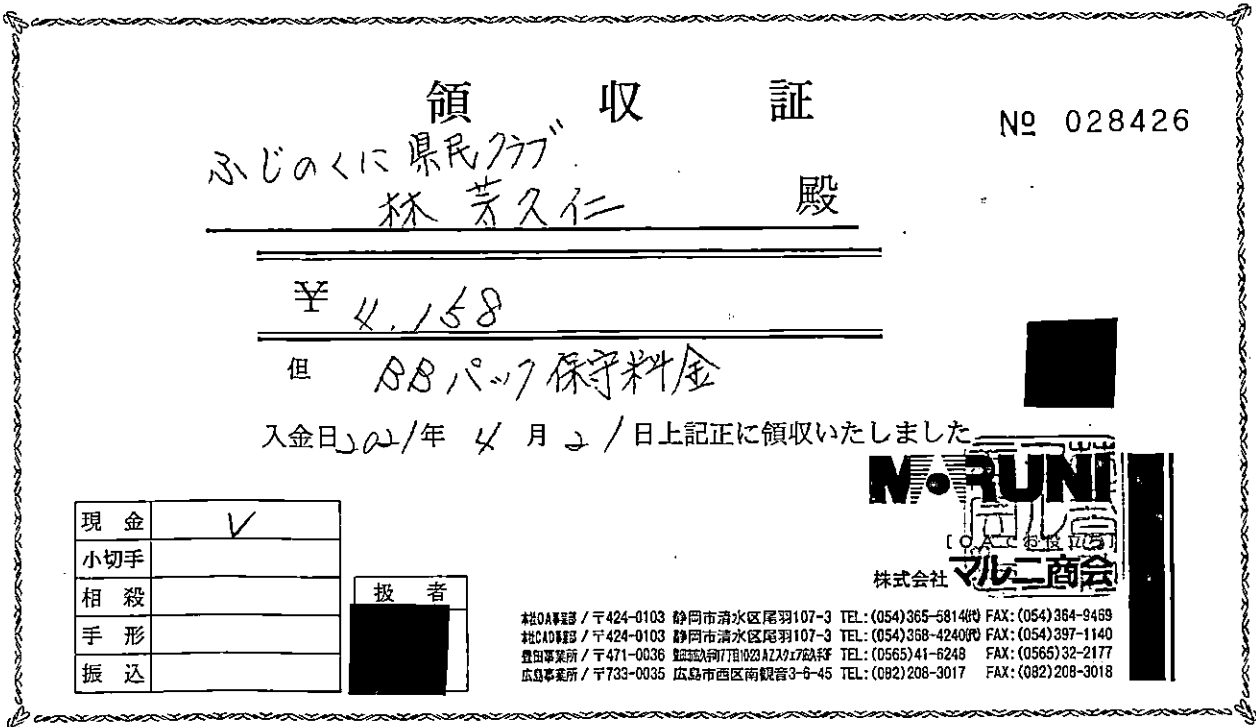 領収証
№ 028426
ふじのくに県民クラブ
林 芳久仁 殿
¥ 4,158
但 BBパック保守料金
入金日2021年 4月21日上記正に領収いたしました
MARUNI
株式会社マルニ商会
現金 V
小切手
相殺
手形
振込
扱者
本社OA事業部 / 〒424-0103 静岡市清水区尾羽107-3 TEL:(054)365-5814(代) FAX:(054)364-9469
本社CAD事業部 / 〒424-0103 静岡市清水区尾羽107-3 TEL:(054)368-4240(代) FAX:(054)397-1140
豊田事業所 / 〒471-0036 TEL:(0565)41-6248 FAX:(0565)32-2177
広島事業所 / 〒733-0035 広島市西区南観音3-6-45 TEL:(082)208-3017 FAX:(082)208-3018